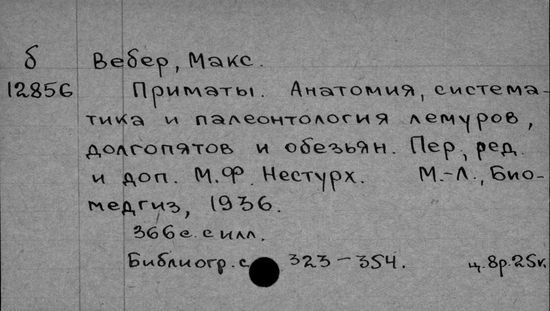 б Вебер, Макс.
12856 Приматы. Анатомия, система-
тика и палеонтология лемуров,
долгопятов и обезьян. Пер., ред.
и доп. М.Ф. Нестурх. М.-Л., Био-
медгиз, 1936.
366 с. с илл.
Библиогр. с. 323-354. ц. 8р. 25к.